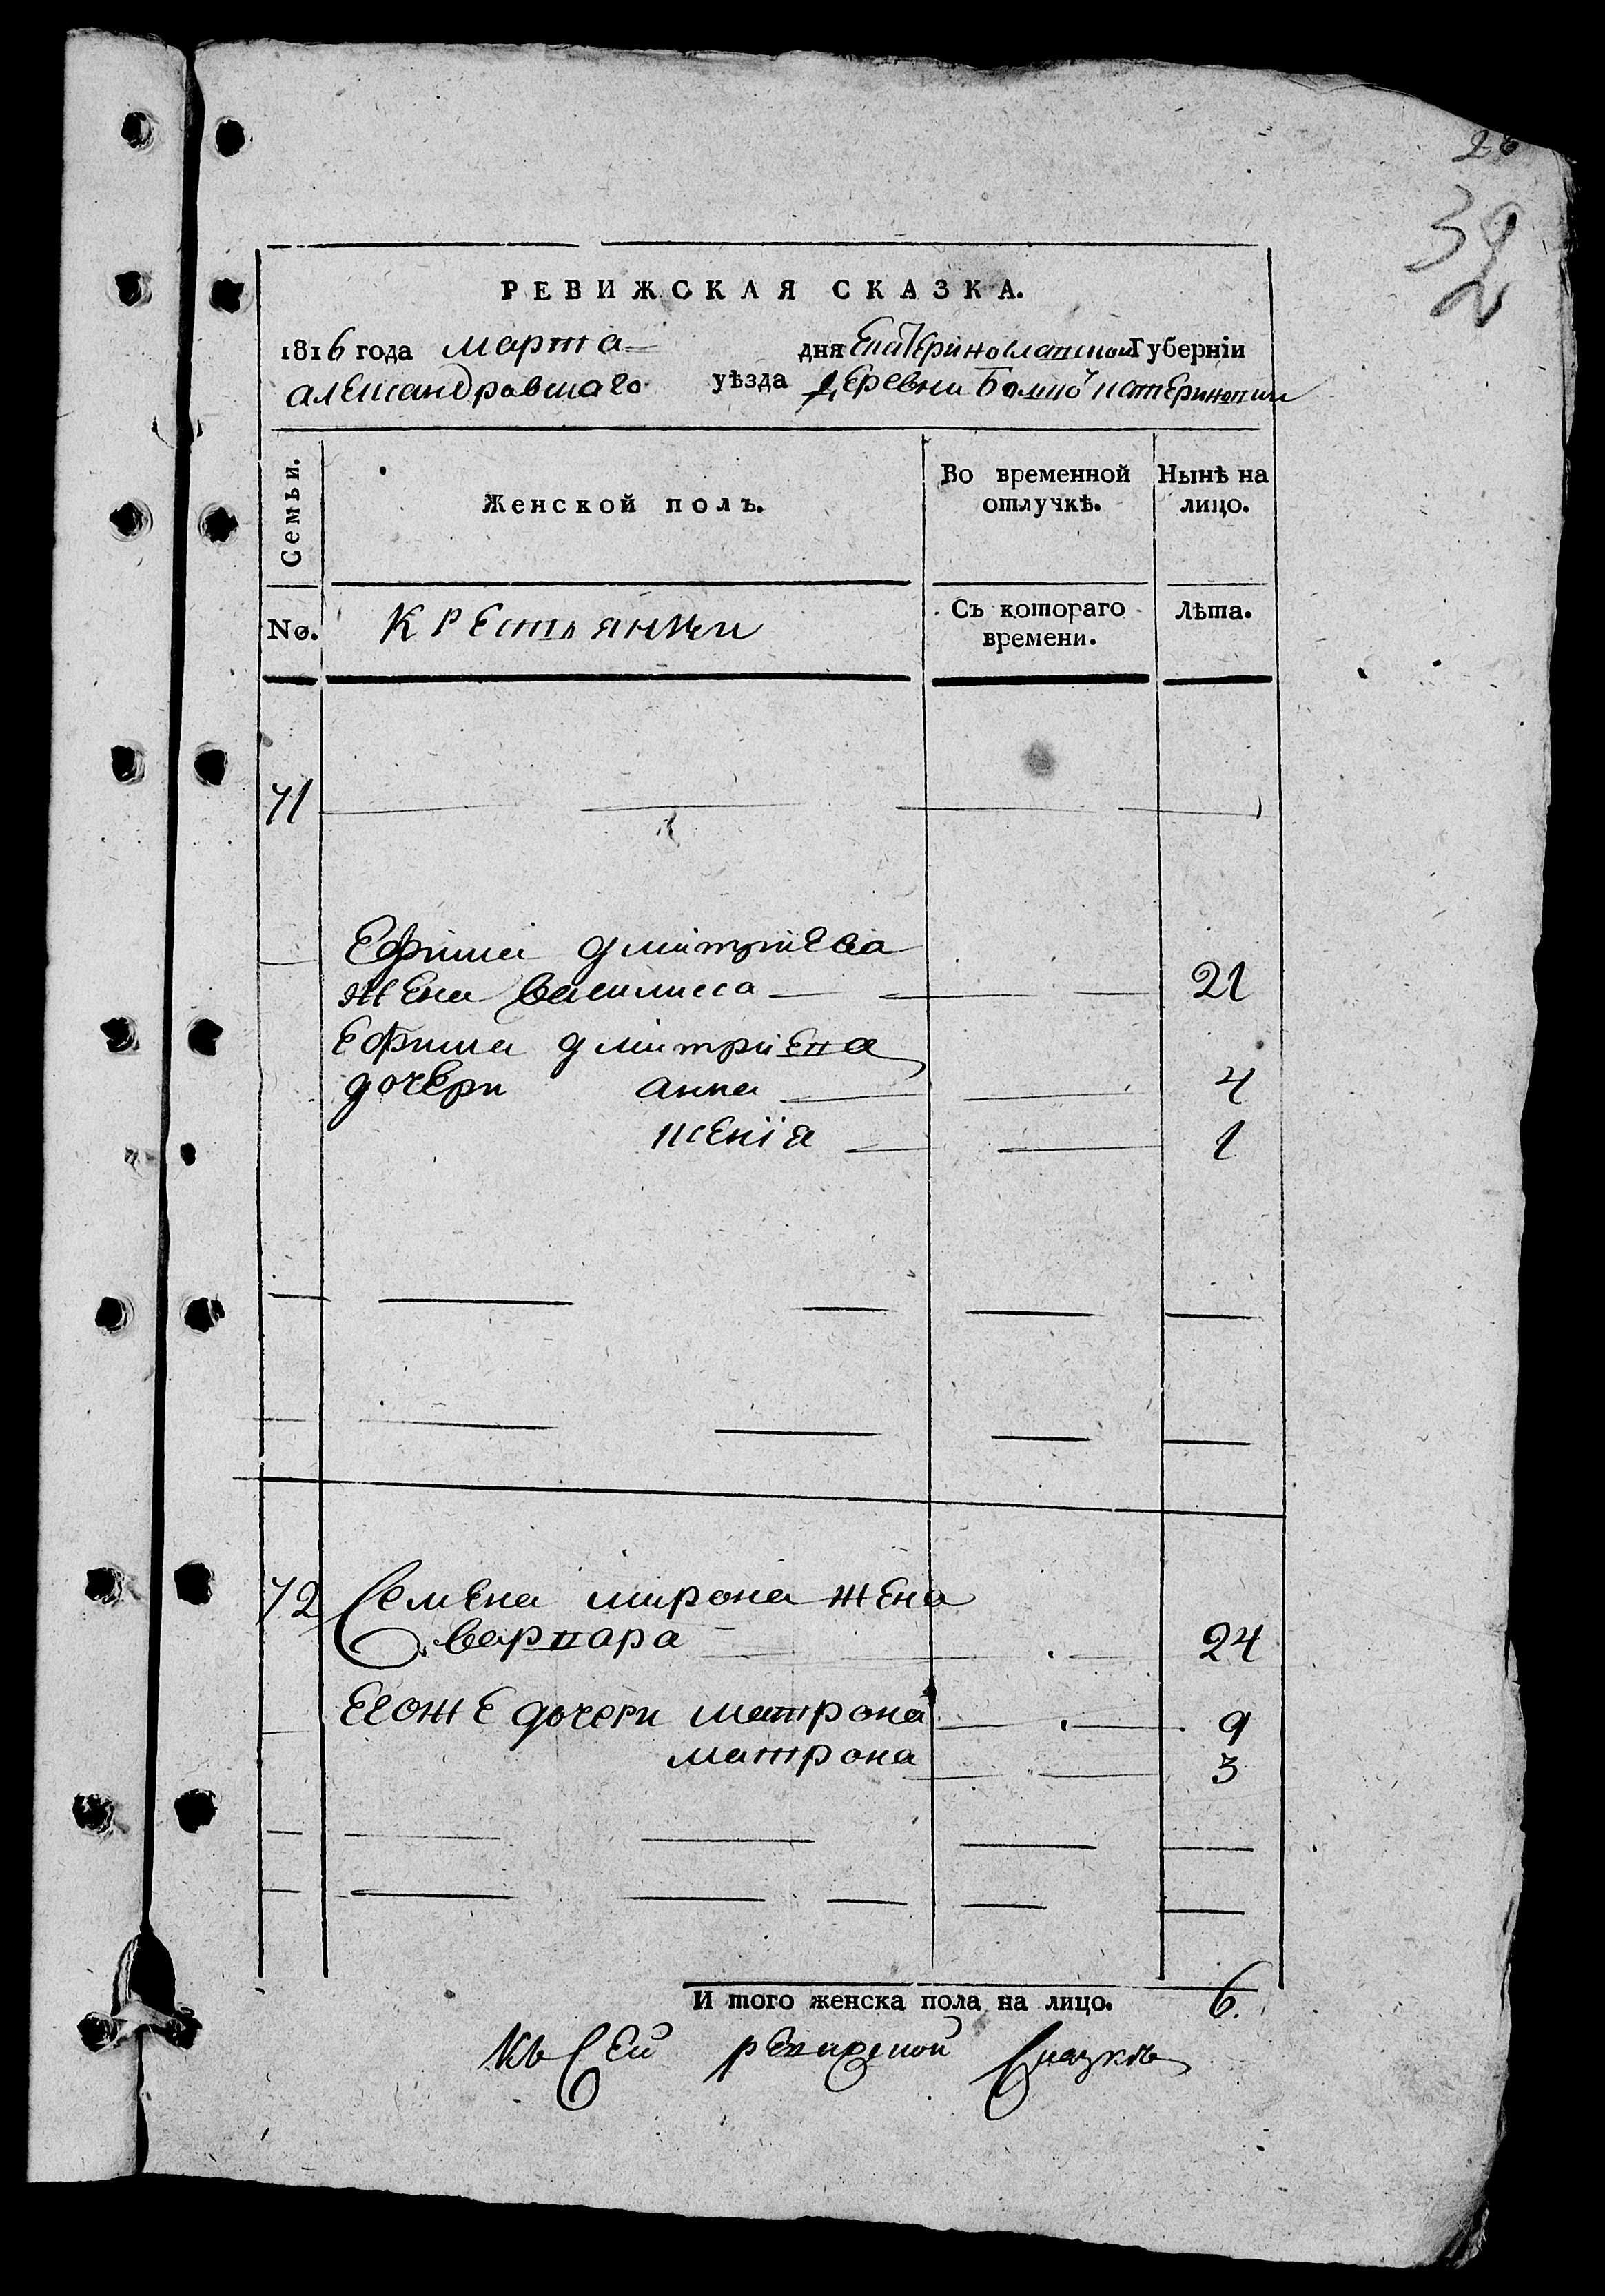 39
РЕВИЖСКАЯ СКАЗКА.
1816 года марта дня Екатеринославской Губерніи
александровскаго уѣзда деревни
Семьи.
Женской полъ.
Во временной отлучкѣ.
Нынѣ на лицо.
No.
крестьянки
Съ котораго времени.
Лѣта.
71
Ефима дмитриева
жена василиса 21
Ефима дмитриева
дочери анна 4
ксенїя 1
72 Семена мирона жена
варвара 24
Егоже дочери матрона 9
матрона 3
И того женска пола на лицо. 6.
Къ Сей ревижской Сказкѣ